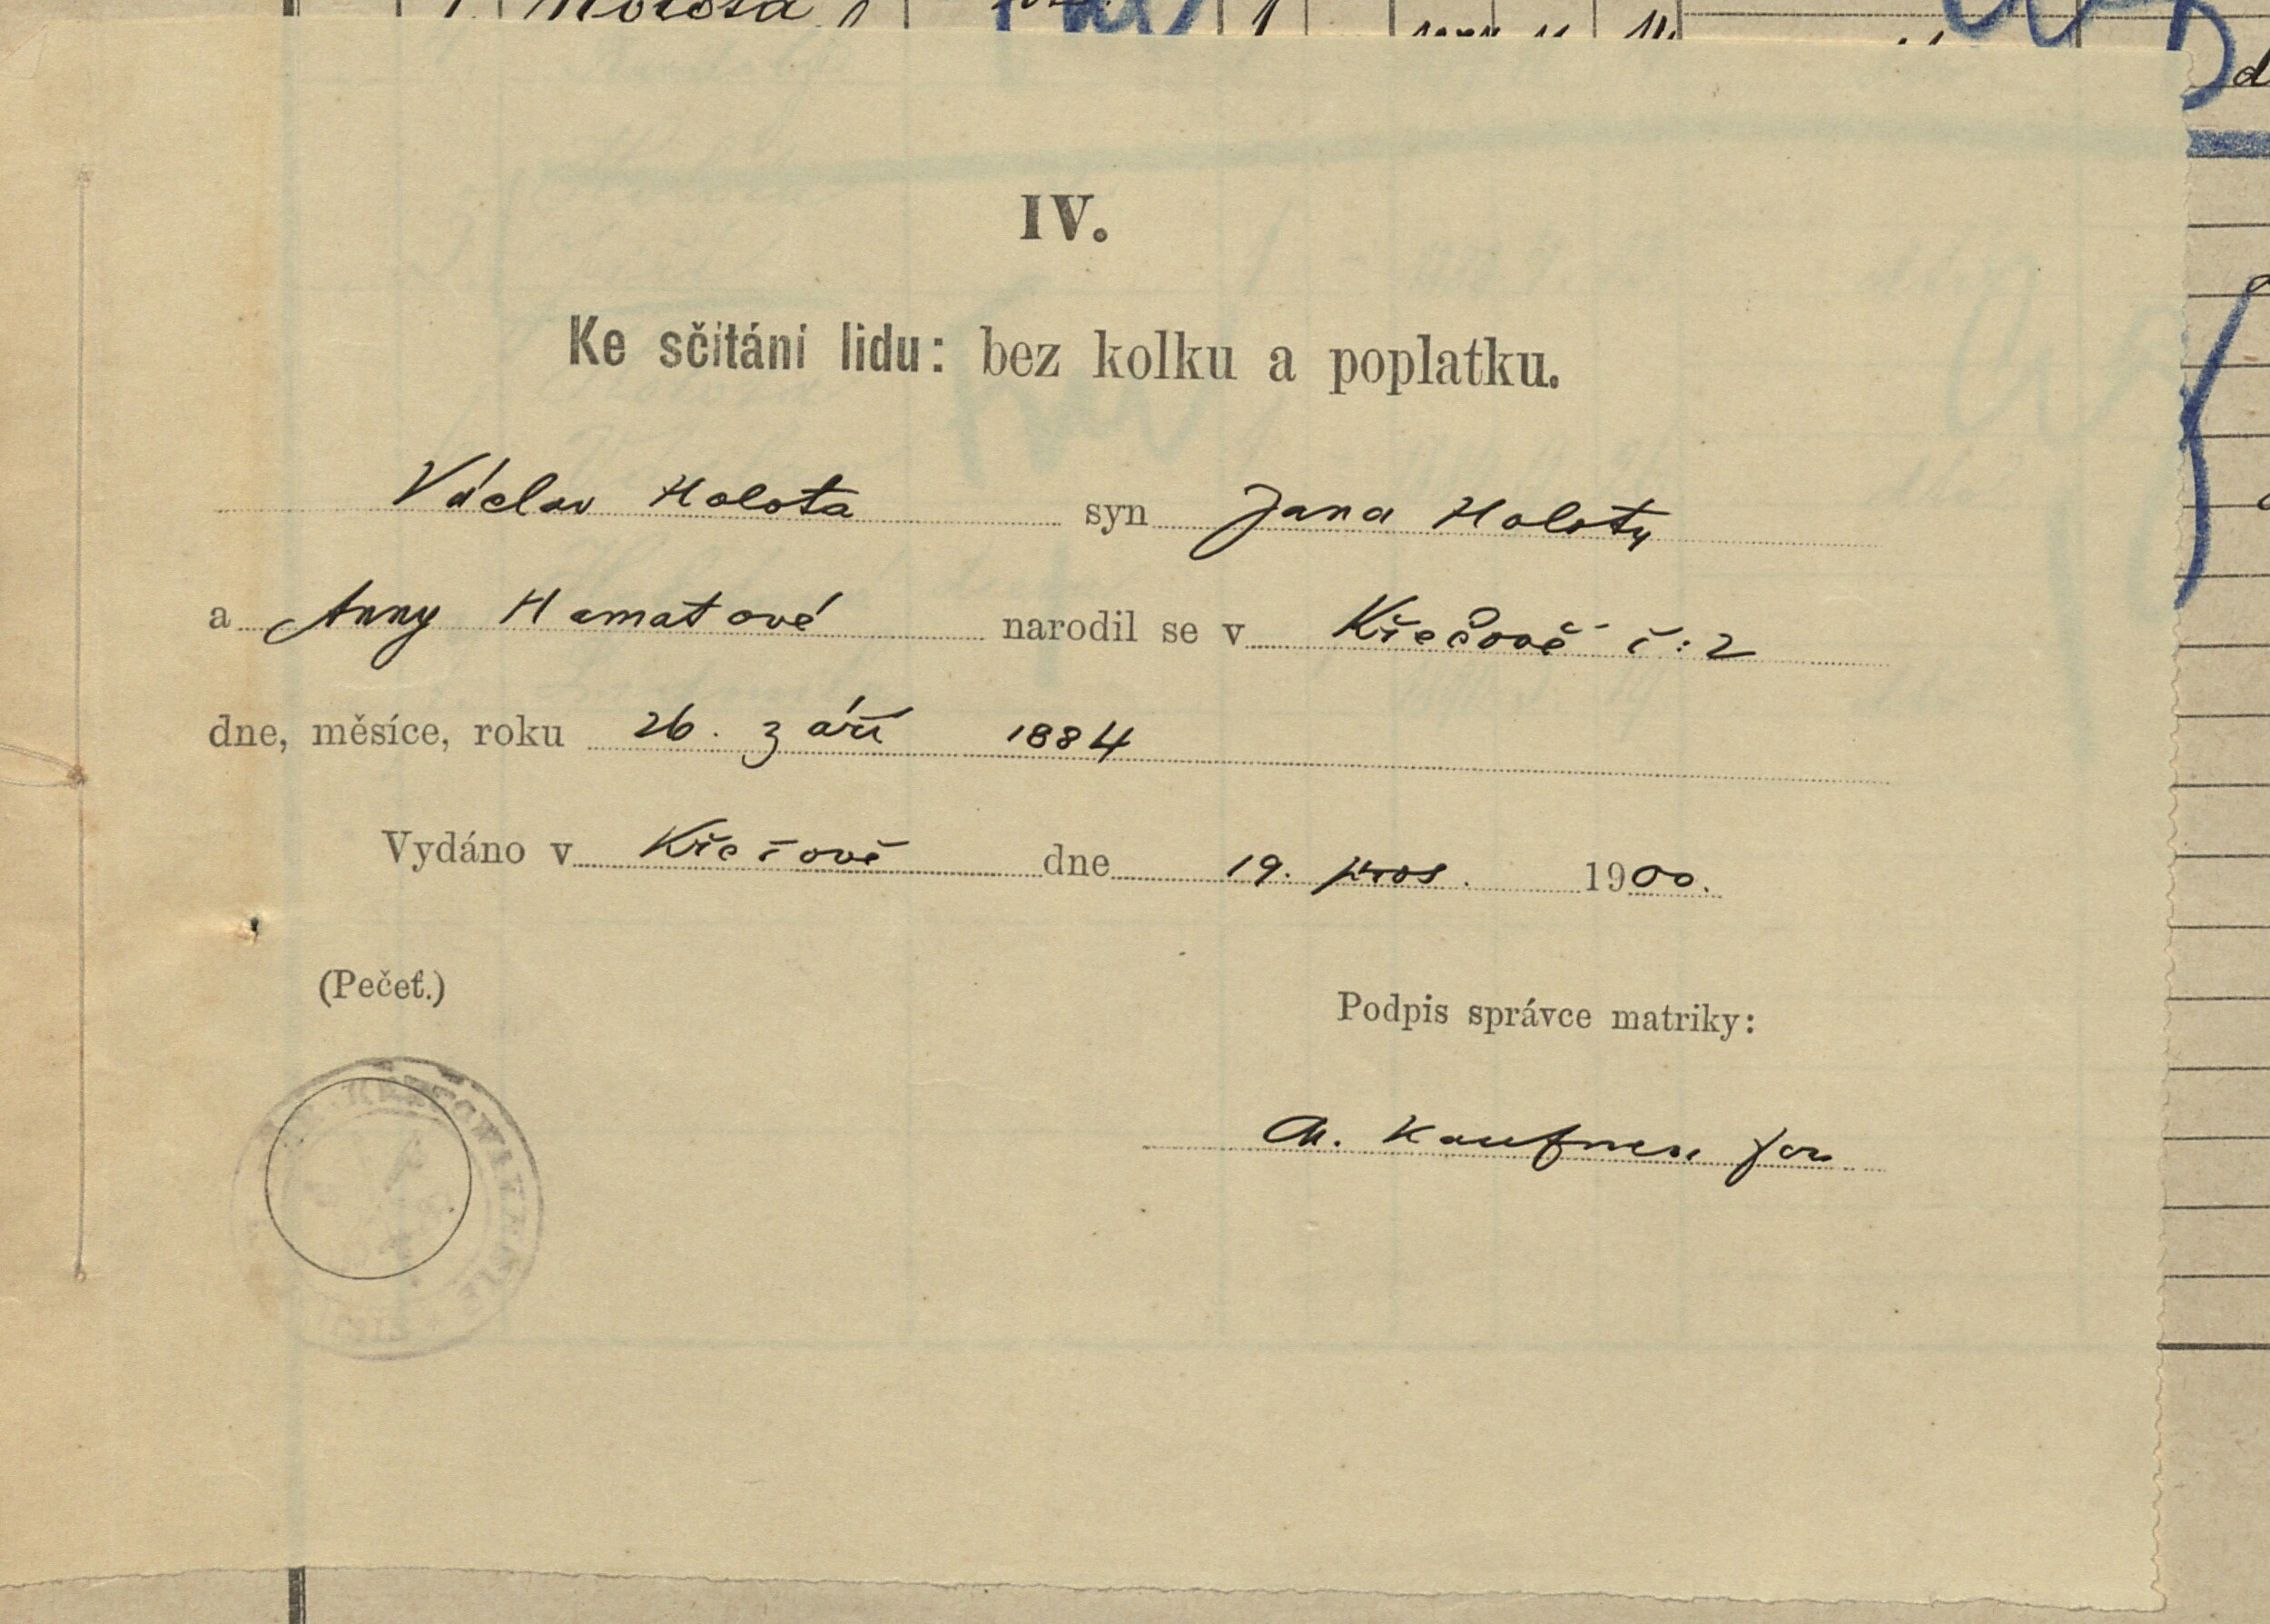 Holota
IV.
Ke sčítání lidu: bez kolku a poplatku.
Václav Holota syn Jana Holoty
a Anny Hamatové narodil se v Křečově č: 2
dne, měsíce, roku 26. září 1884
Vydáno v Křečově dne 19. pros. 1900.
(Pečeť.)
Podpis správce matriky: